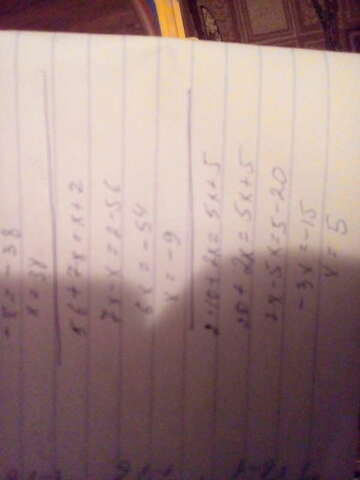 -x = -38
x = 38
56+7x = x+2
7x-x = 2-56
6x = -54
x = -9
2·10+2x = 5x+5
20+2x = 5x+5
2x-5x = 5-20
-3x = -15
x = 5